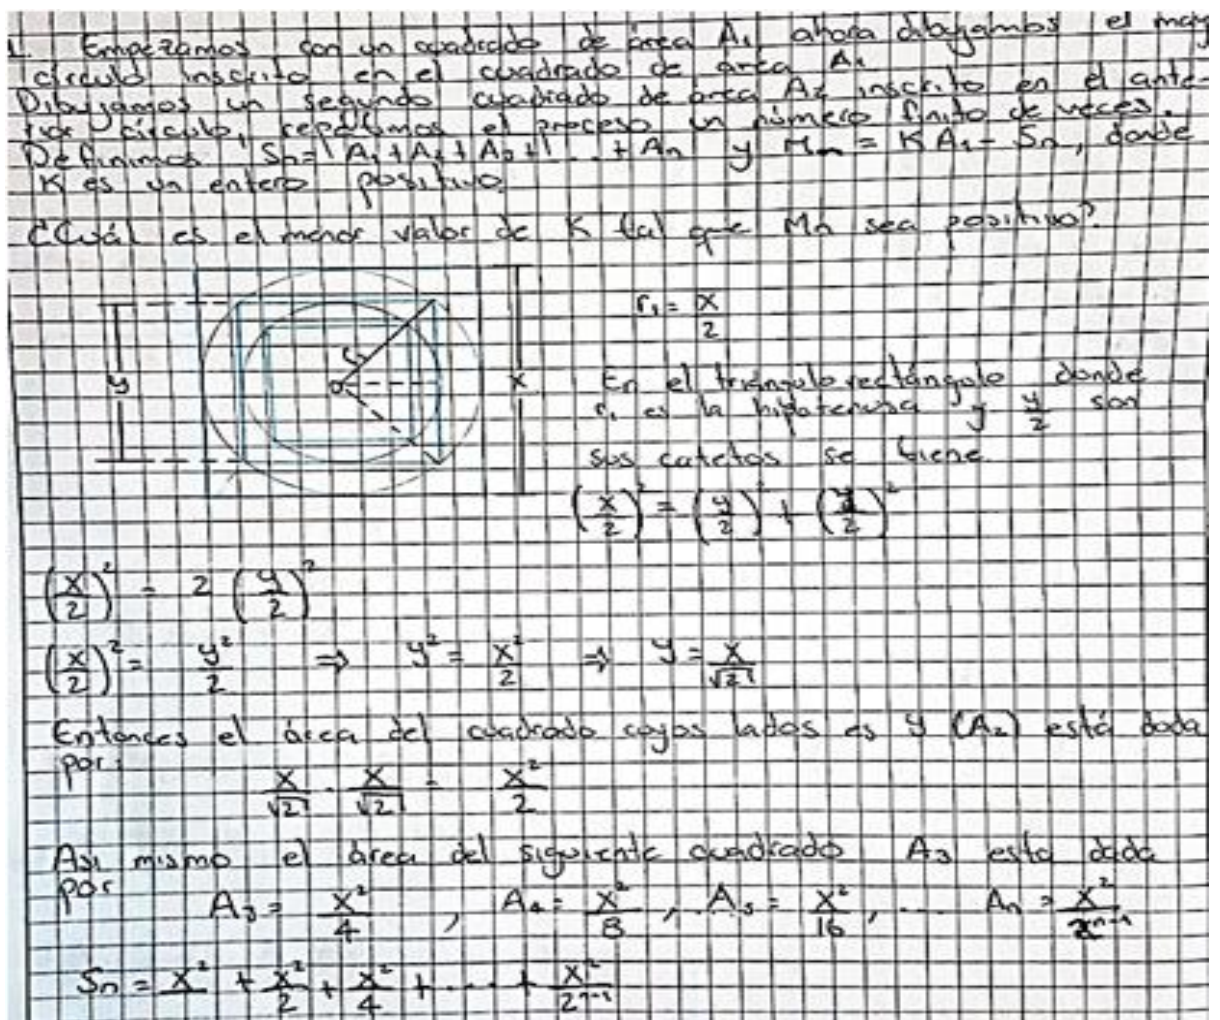 1. Empezamos con un cuadrado de área A₁, ahora dibujamos el may
círculo inscrito en el cuadrado de área A₁
Dibujamos un segundo cuadrado de área A₂ inscrito en el ante-
rior círculo, repetimos el proceso un número finito de veces.
Definimos Sn = A₁ + A₂ + A₃ + ... + An y Mn = KA₁ - Sn, donde
K es un entero positivo.
¿Cuál es el menor valor de K tal que Mn sea positivo?
r₁ = x/2
y
r₁
O
x
En el triángulo rectángulo donde
r₁ es la hipotenusa y y/2 son
sus catetos se tiene
(x/2)² = (y/2)² + (y/2)²
(x/2)² = 2 (y/2)²
(x/2)² = y²/2 ⇒ y² = x²/2 ⇒ y = x/√2
Entonces el área del cuadrado cuyos lados es y (A₂) está dada
por:
x/√2 · x/√2 = x²/2
Asi mismo el área del siguiente cuadrado A₃ esta dada
por
A₃ = x²/4 , A₄ = x²/8 , A₅ = x²/16 , ... An = x²/2ⁿ⁻¹
Sn = x² + x²/2 + x²/4 + ... + x²/2ⁿ⁻¹